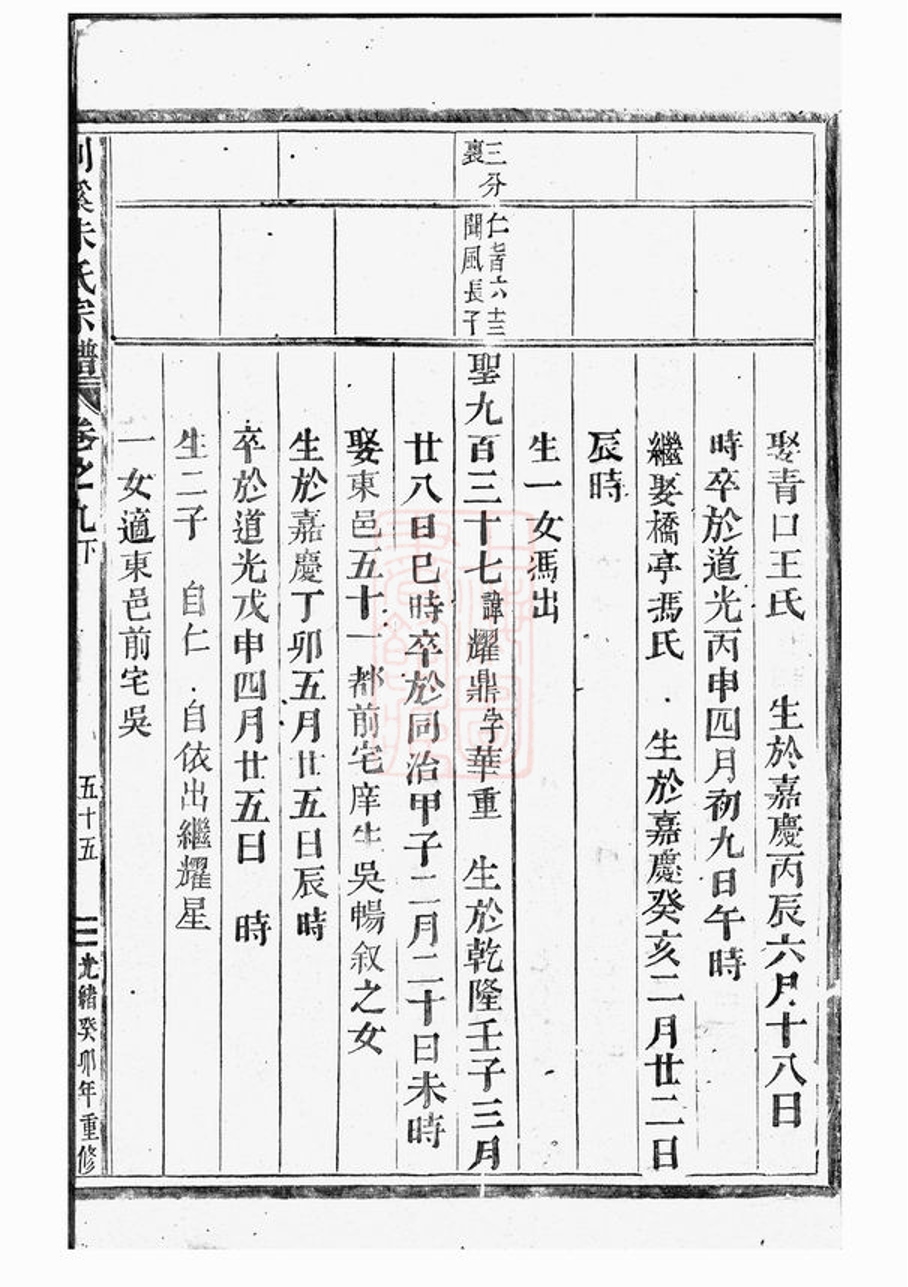 娶青口王氏　生於嘉慶丙辰六月十八日
時卒於道光丙申四月初九日午時
繼娶橋亭馮氏　生於嘉慶癸亥二月廿二日
辰時
生一女馮出
三分
裏
仁耆六十三
聞風長子
聖九百三十七諱耀鼎字華重　生於乾隆壬子三月
廿八日巳時卒於同治甲子二月二十日未時
娶東邑五十一都前宅庠生吳暢叙之女
生於嘉慶丁卯五月廿五日辰時
卒於道光戊申四月廿五日　時
生二子　自仁　自依出繼耀星
一女適東邑前宅吳
溪朱氏宗譜
卷之九下
五十五
光緒癸卯年重修
上海圖